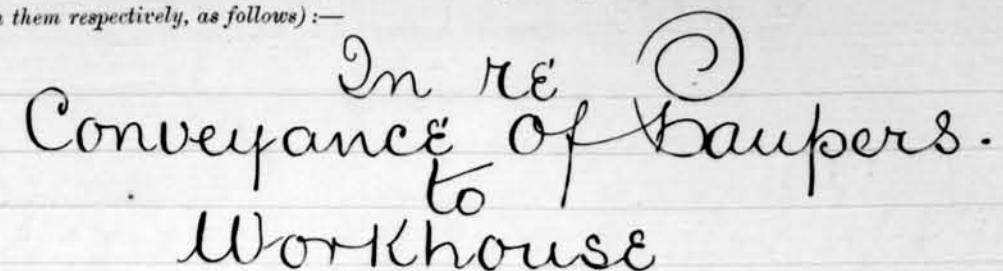 them respectively, as follows) :—
In re
Conveyance of Paupers.
to
Workhouse